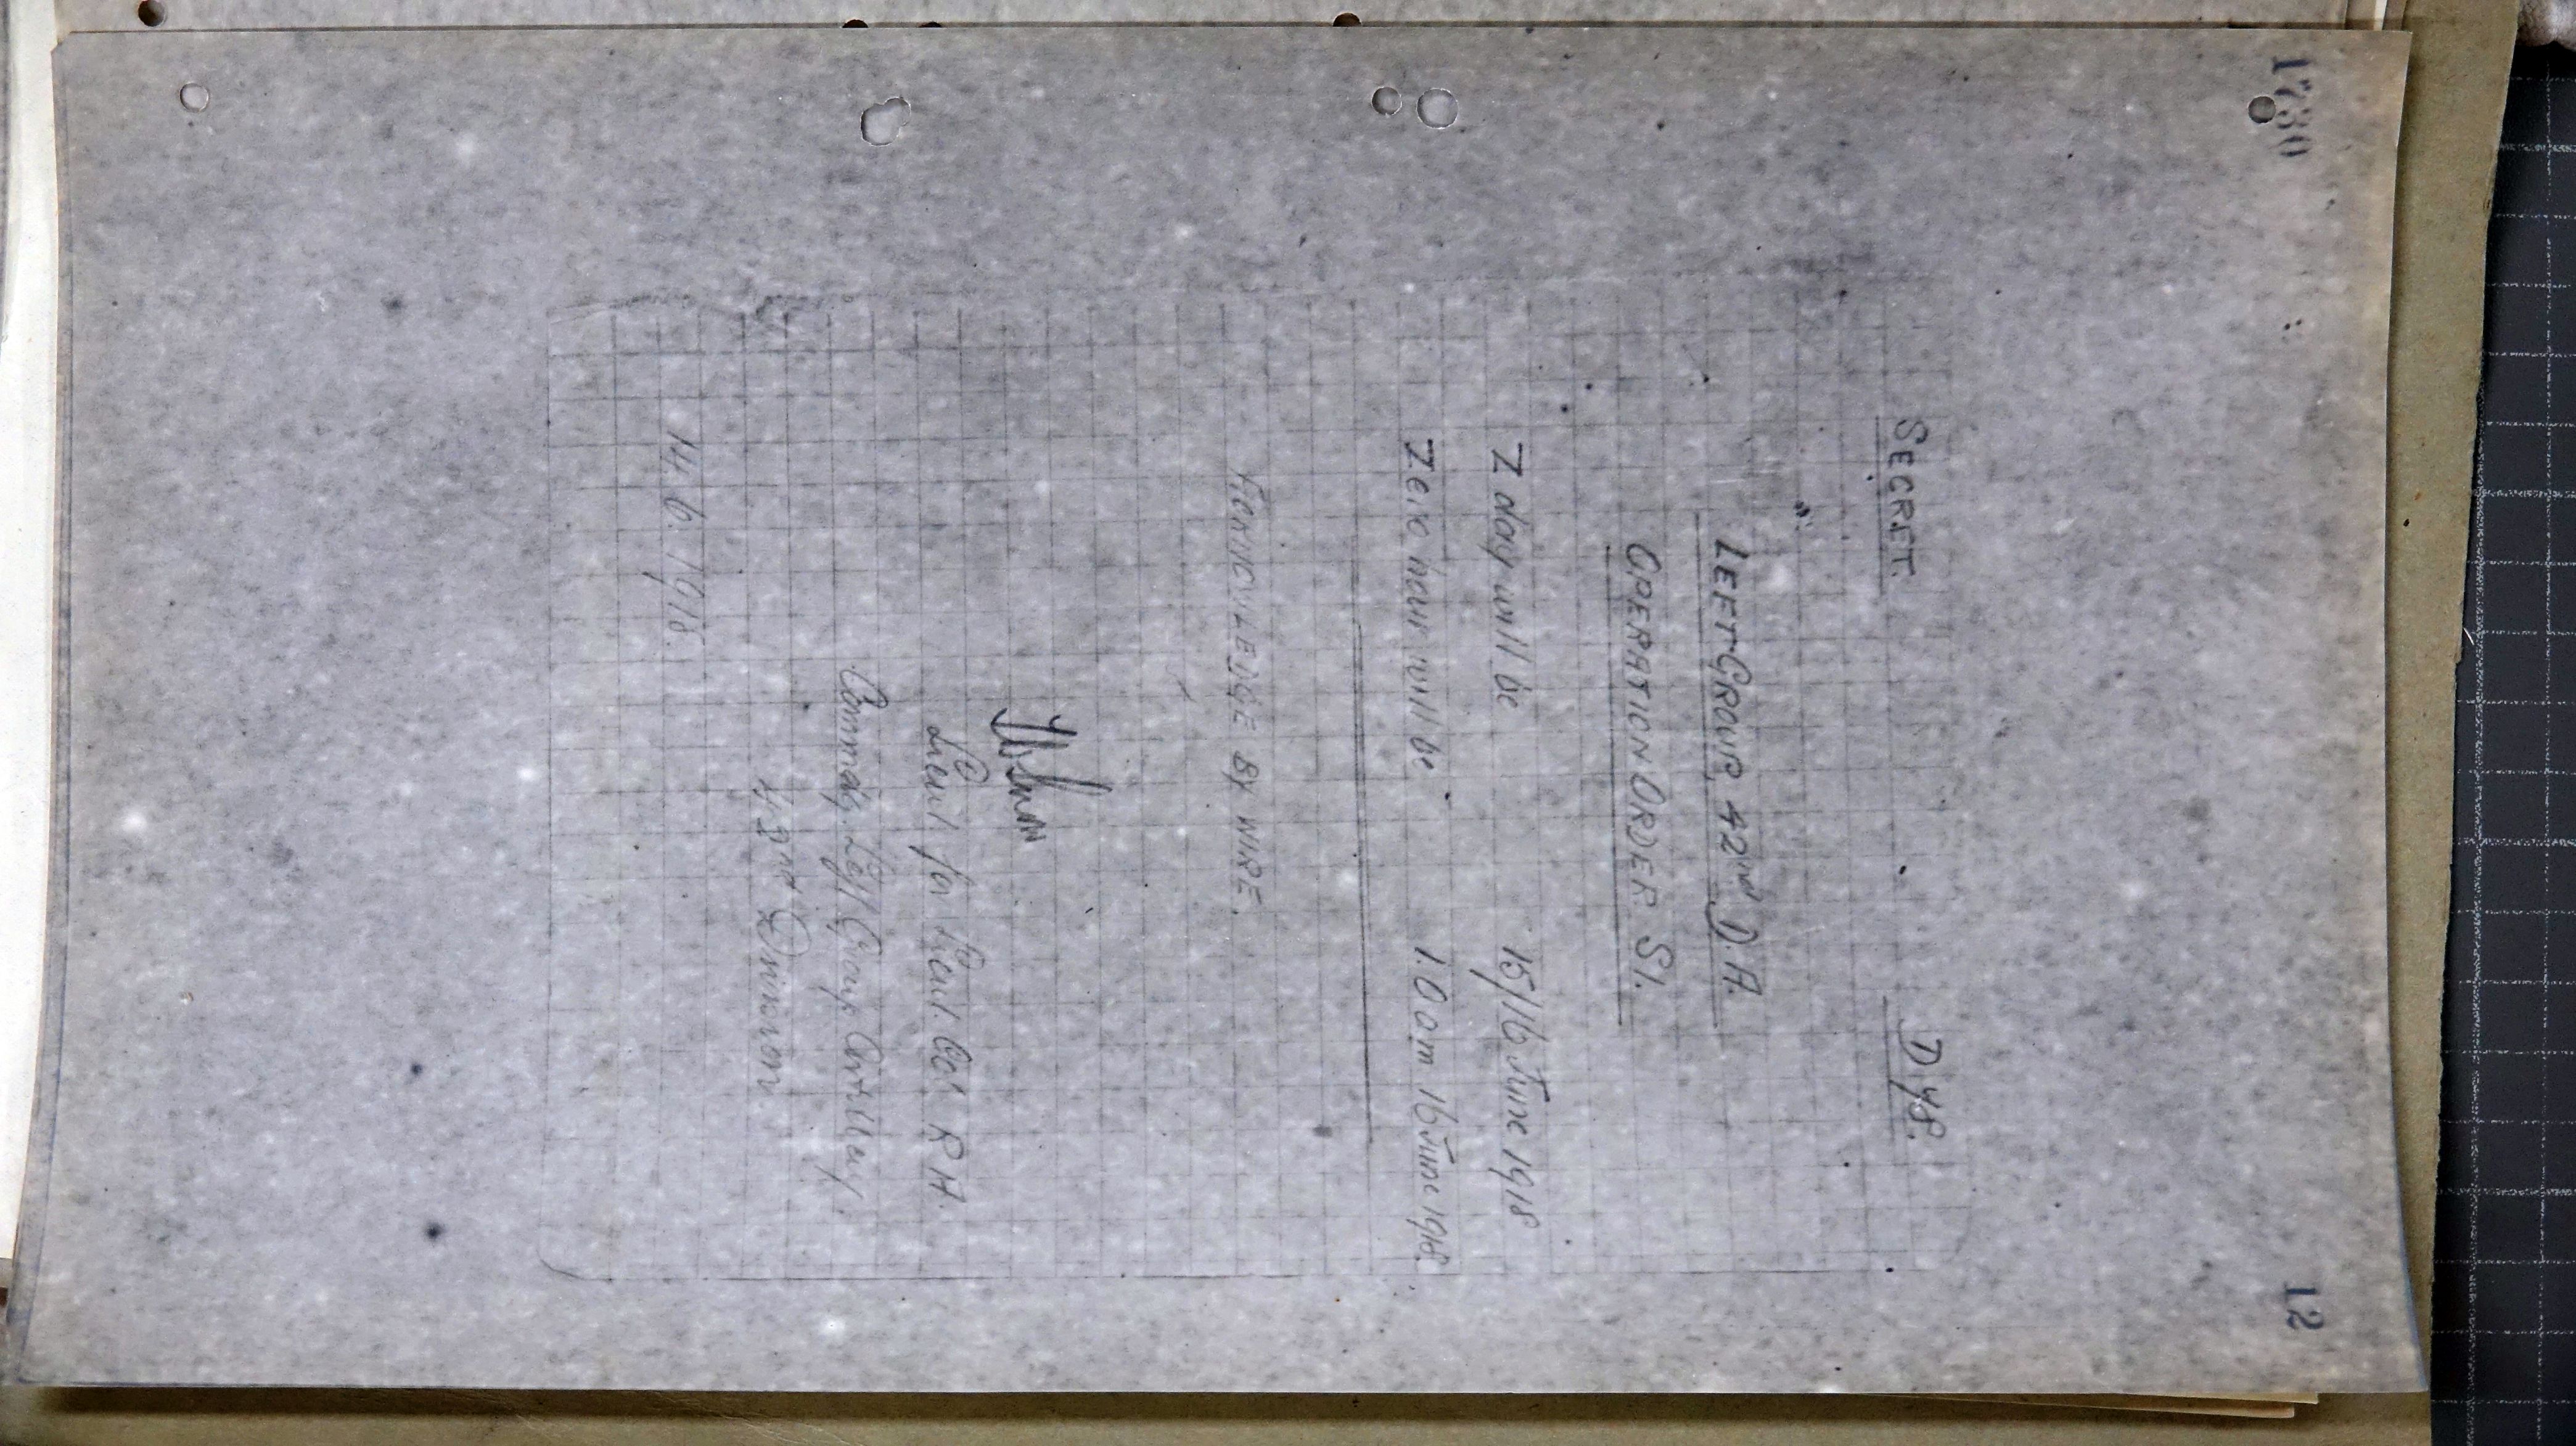 1730 12
SECRET. DY8.
LEFT GROUP 42nd D.A.
OPERATION ORDER S1.
Z day will be 15/16 June 1918
Zero hour will be 1.0 am 16 June 1918.
ACKNOWLEDGE BY WIRE.
Lieut. for Lieut. Col. R A.
Commdg. Left Group Artillery.
42nd Division
14.6.1918.